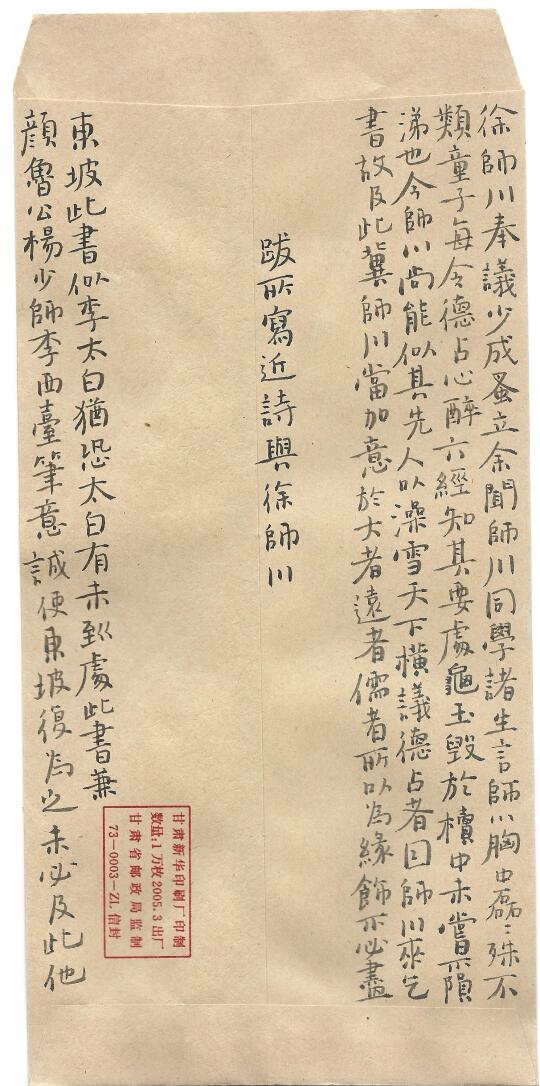 徐師川奉議少成蚤立余聞師川同學諸生言師川胸中磊〻殊不
類童子每令德占心醉六經知其要處龜玉毀於櫝中未嘗不隕
涕也今師川尚能似其先人以澡雪天下橫議德占者因師川來乞
書故及此冀師川當加意於大者遠者儒者所以為緣飾不必盡
跋所寫近詩與徐師川
東坡此書似李太白猶恐太白有未到處此書兼
顏魯公楊少師李西臺筆意誠使東坡復為之未必及此他
甘肃新华印刷厂印制
数量:1万枚2005.3出厂
甘肃省邮政局监制
73-0003-ZL信封